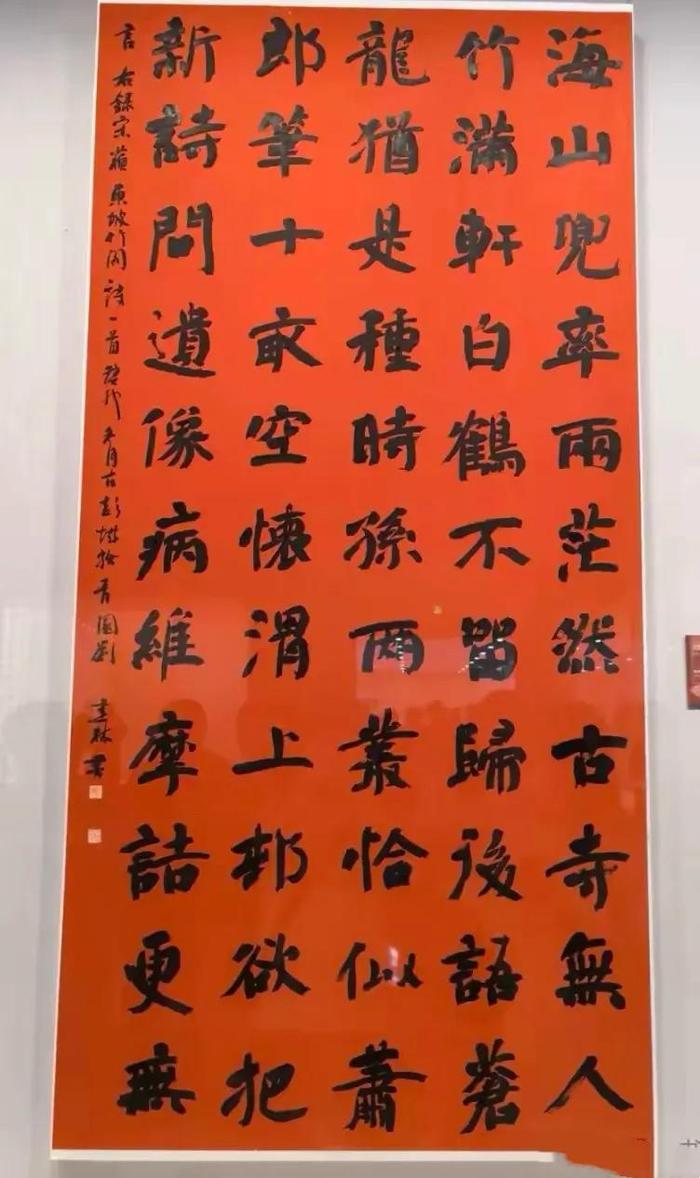 海山兜率兩茫然古寺無人
竹滿軒白鶴不留歸後語蒼
龍猶是種時孫两叢恰似蕭
郎筆十畝空懷渭上邨欲把
新詩問遺像病維摩詰更無
言 右錄宋蘇東坡竹閣詩一首 月古彭 青園劉 建林書